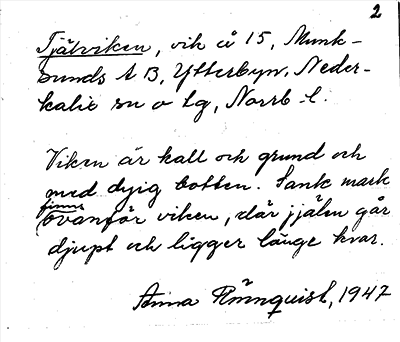 2
Tjälviken, vik å 15, Munk-
sunds A B, Ytterbyn, Neder-
kalix sn o lg, Norrb. l.
Viken är kall och grund och
med dyig botten. Sank mark
finns
ovanför viken, där jjälen går
djupt och ligger länge kvar.
Anna Rönnquist, 1947